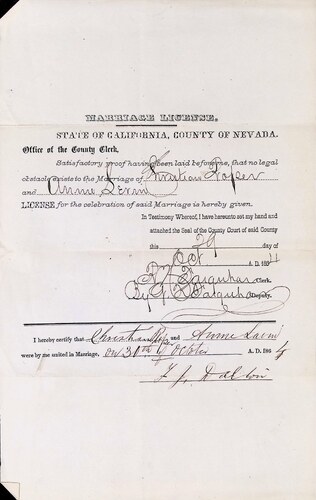 MARRIAGE LICENSE.
STATE OF CALIFORNIA, COUNTY OF NEVADA.
Office of the County Clerk,
Satisfactory proof having been laid before me, that no legal
obstacle exists to the Marriage of Christian Roper
and Annie
LICENSE for the celebration of said Marriage is hereby given.
In Testimony Whereof, I have hereunto set my hand and
attached the Seal of the County Court of said County
this 29 day of
Oct A.D. 1864
Farquhar Clerk.
By Farquhar Deputy.
I hereby certify that Christian Roper and Annie
were by me united in Marriage, on 30th October A. D. 1864
F J Dalton